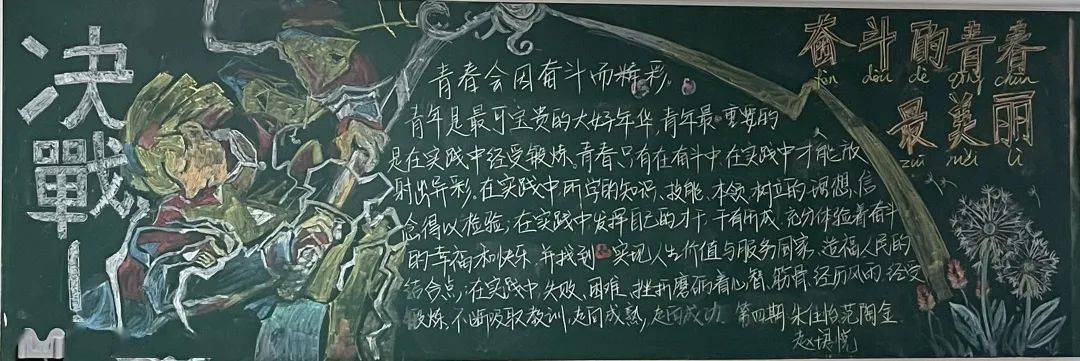 决
戰
奋斗的青春
fèn dòu dè qīng chūn
最美丽
zuì měi lì
青春会因奋斗而精彩
青年是最可宝贵的大好年华,青年最重要的
是在实践中经受锻炼、青春只有在奋斗中、在实践中才能放
射出异彩。在实践中所学的知识、技能、本领、树立的理想、信
念得以检验;在实践中发挥自己的才干,充分体验着奋斗
的幸福和快乐,并找到实现人生价值与服务国家、造福人民的
结合点;在实践中失败、困难、挫折磨砺着心智、筋骨,经历风雨、经受
锻炼、不断吸取教训,走向成熟,走向成功。第四期